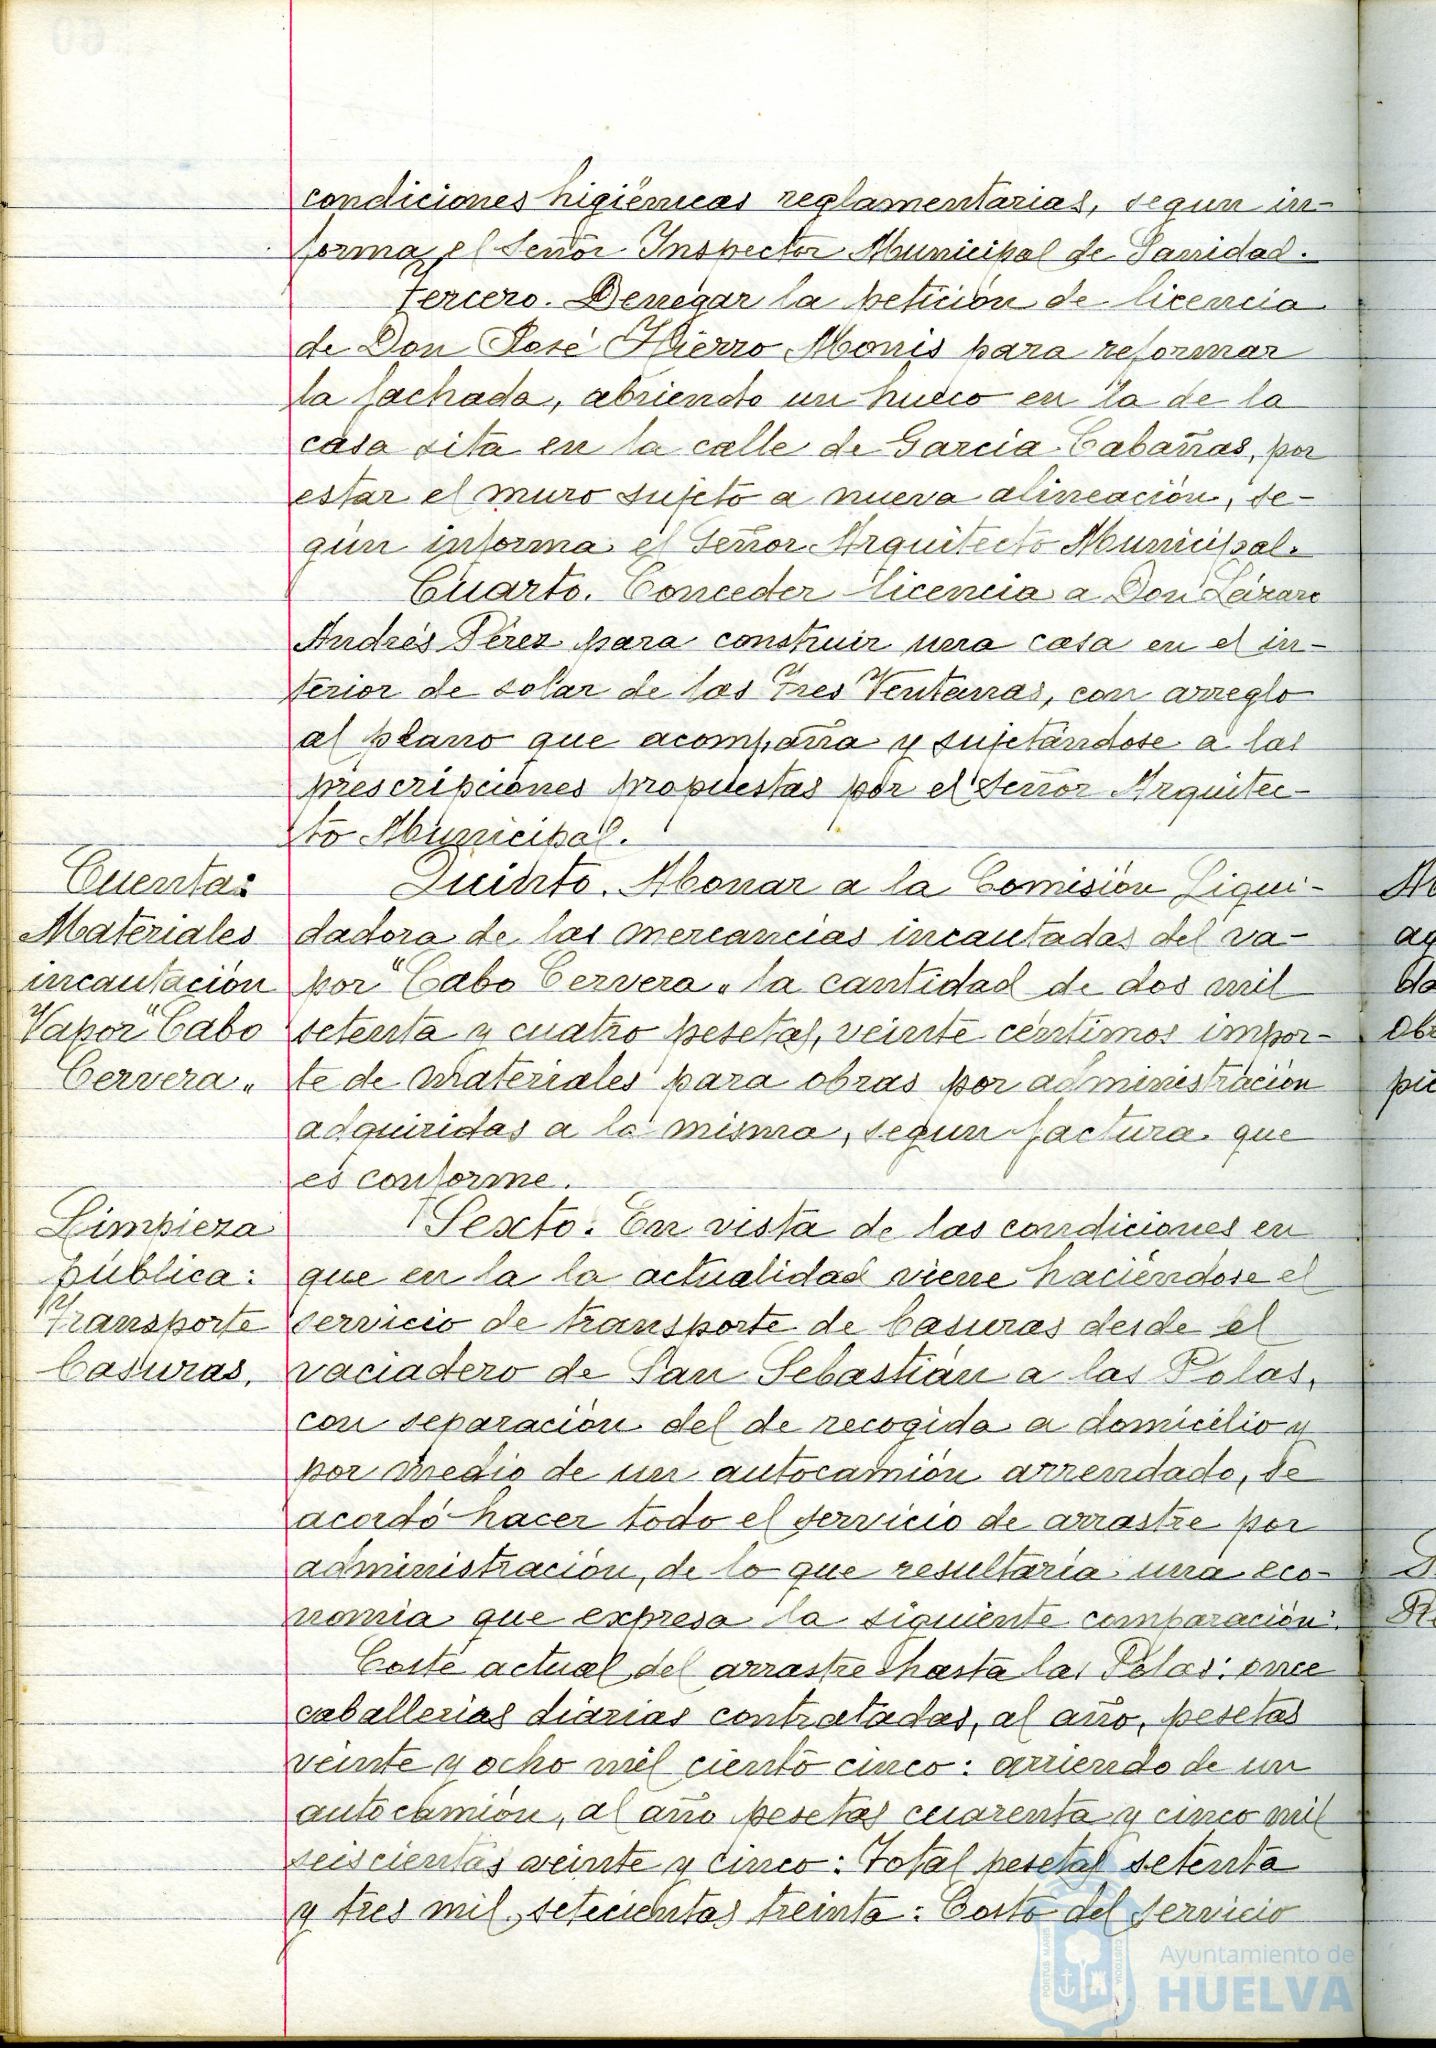 condiciones higiénicas reglamentarias, segun in-
forma el Señor Inspector Municipal de Sanidad.
Tercero. Denegar la petición de licencia
de Don José Hierro Monis para reformar
la fachada, abriendo un hueco en la de la
casa sita en la calle de García Cabañas, por
estar el muro sujeto a nueva alineación, se-
gún informa el Señor Arquitecto Municipal.
Cuarto. Conceder licencia a Don Lázaro
Andrés Pérez para construir una casa en el in-
terior de solar de las Tres Ventanas, con arreglo
al plano que acompaña y sujetándose a las
prescripciones propuestas por el Señor Arquitec-
to Municipal.
Cuenta:
Materiales
incautación
Vapor "Cabo
Cervera"
Quinto. Abonar a la Comisión Liqui-
dadora de las mercancias incautadas del va-
por "Cabo Cervera" la cantidad de dos mil
setenta y cuatro pesetas, veinte céntimos impor-
te de materiales para obras por administración
adquiridas a la misma, segun factura que
es conforme.
Limpieza
pública:
Transporte
basuras.
Sexto. En vista de las condiciones en
que en la la actualidad viene haciéndose el
servicio de transporte de basuras desde el
vaciadero de San Sebastián a las Polas,
con separación del de recogida a domicilio y
por medio de un autocamión arrendado, se
acordó hacer todo el servicio de arrastre por
administración, de lo que resultaría una eco-
nomia que expresa la siguiente comparación:
Coste actual del arrastre hasta las Polas: once
caballerias diarias contratadas, al año, pesetas
veinte y ocho mil ciento cinco: arriendo de un
autocamión, al año pesetas cuarenta y cinco mil
seiscientas veinte y cinco: Total pesetas setenta
y tres mil, setecientas treinta: Costo del servicio
PORTUS MARIS
CUSTODIA
Ayuntamiento de
HUELVA